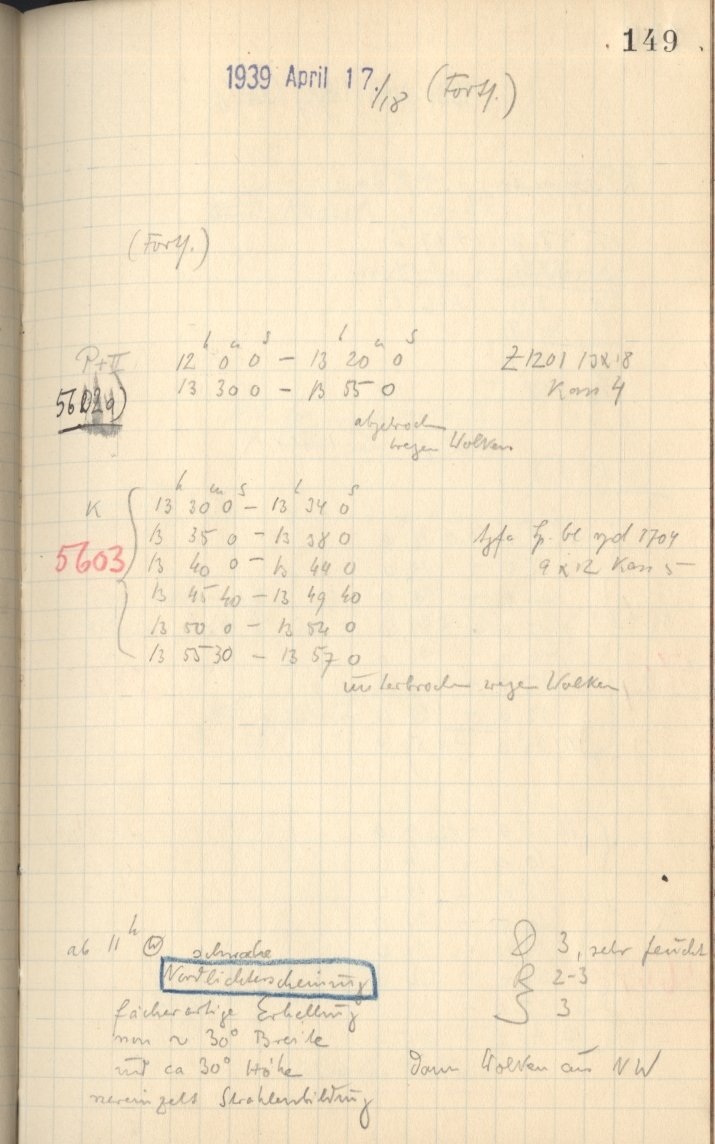 149
1939 April 17./18 (Forts.)
(Forts.)
h m s h m s
P+II 12 0 0 – 13 20 0 Z1201 13x18
13 30 0 – 13 55 0 Kass 4
abgebrochen
wegen Wolken
h m s h s
K 13 30 0 – 13 34 0
13 35 0 – 13 38 0
5603 13 40 0 – 13 44 0 9x12 Kass 5
13 45 40 – 13 49 40
13 50 0 – 13 54 0
13 55 30 – 13 57 0
unterbrochen wegen Wolken
ab 11 h schwache D 3, sehr feucht
Nordlichterscheinung R 2-3
fächerartige Erhellung S 3
von ~ 30° Breite
und ca 30° Höhe dann Wolken aus NW
vereinzelt Strahlenbildung